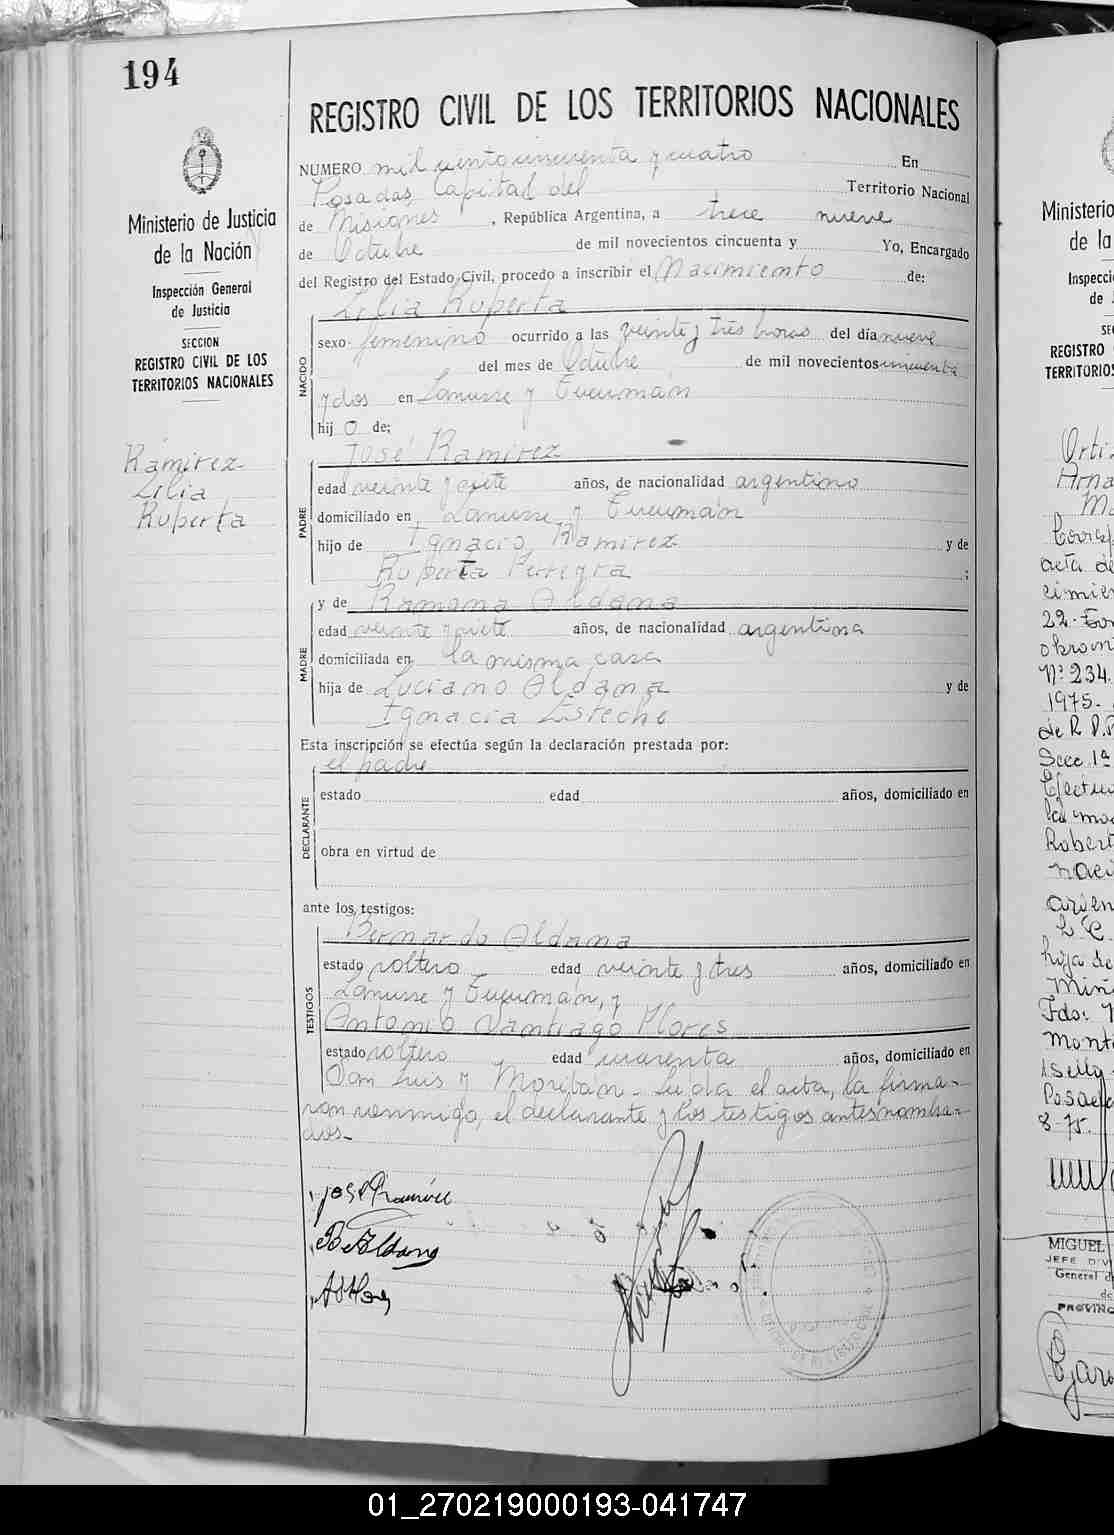 194
REGISTRO CIVIL DE LOS TERRITORIOS NACIONALES
Ministerio de Justicia
de la Nación
Inspección General
de Justicia
SECCION
REGISTRO CIVIL DE LOS
TERRITORIOS NACIONALES
Ramirez
Lilia
Ruperta
NUMERO mil ciento cincuenta y cuatro En
Posadas, Capital del Territorio Nacional
de Misiones, República Argentina, a trece nueve
de Octubre de mil novecientos cincuenta y Yo, Encargado
del Registro del Estado Civil, procedo a inscribir el Nacimiento de:
Lilia Ruperta
NACIDO
sexo femenino ocurrido a las veinte y tres horas del día nueve
del mes de Octubre de mil novecientos cincuenta
y dos en Lanusse y Tucumán
hij o de:
José Ramirez
PADRE
edad veinte y siete años, de nacionalidad argentino
domiciliado en Lanusse y Tucumán
hijo de Ignacio Ramirez y de
Ruperta Ferreyra ;
y de Ramona Aldana
MADRE
edad veinte y siete años, de nacionalidad argentina
domiciliada en la misma casa
hija de Luciano Aldana y de
Ignacia Esteche
Esta inscripción se efectúa según la declaración prestada por:
el padre
DECLARANTE
estado edad años, domiciliado en
obra en virtud de
ante los testigos:
Bernardo Aldana
TESTIGOS
estado soltero edad veinte y tres años, domiciliado en
Lanusse y Tucumán, y
Antonio Santiago Flores
estado soltero edad cuarenta años, domiciliado en
San Luis y Moritán - Leída el acta, la firma-
ron conmigo, el declarante y los testigos antes nombra-
dos-
José Ramírez
B Aldana
Ministerio
de la
Inspecci
de
REGISTRO
TERRITORIOS
Orti
Arna
acta de
cimien
22
Nº 234
1975.
de R.P.P
Secc 1ª
Robert
naci
hija de
Fdo:
Posad
8-75.
MIGUEL
JEFE DIV
General d
de
PROVINC
01_270219000193-041747